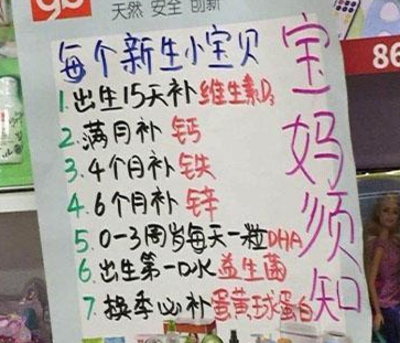 gb
天然 安全 创新
每个新生小宝贝
1.出生15天补维生素D₃
2.满月补钙
3.4个月补铁
4.6个月补锌
5.0-3周岁每天一粒DHA
6.出生第一口水益生菌
7.换季必补蛋黄球蛋白
宝妈须知
86